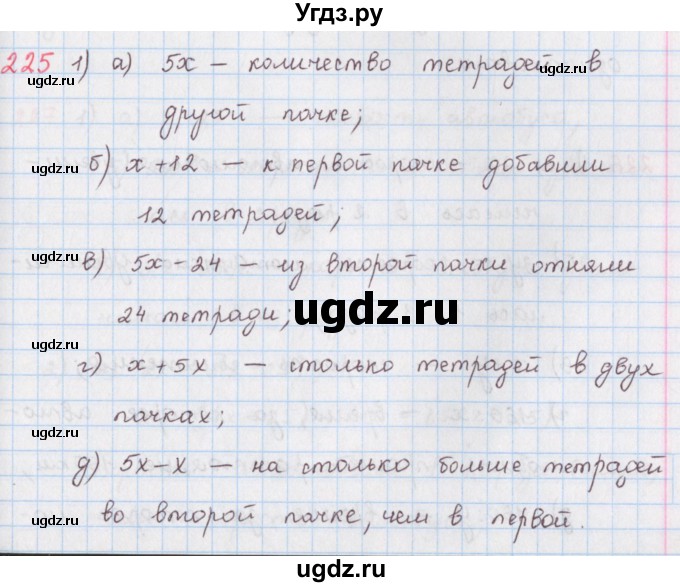 Угдз.ру
225 1) а) 5x – количество тетрадей в
другой пачке;
б) x+12 – к первой пачке добавили
12 тетрадей;
в) 5x-24 – из второй пачки отняли
24 тетради;
г) x+5x – столько тетрадей в двух
пачках;
д) 5x-x – на столько больше тетрадей
во второй пачке, чем в первой.
ugdz.ru
ugdz.ru
ugdz.ru
ugdz.ru
ugdz.ru
ugdz.ru
ugdz.ru
ugdz.ru
ugdz.ru
ugdz.ru
ugdz.ru
ugdz.ru
ugdz.ru